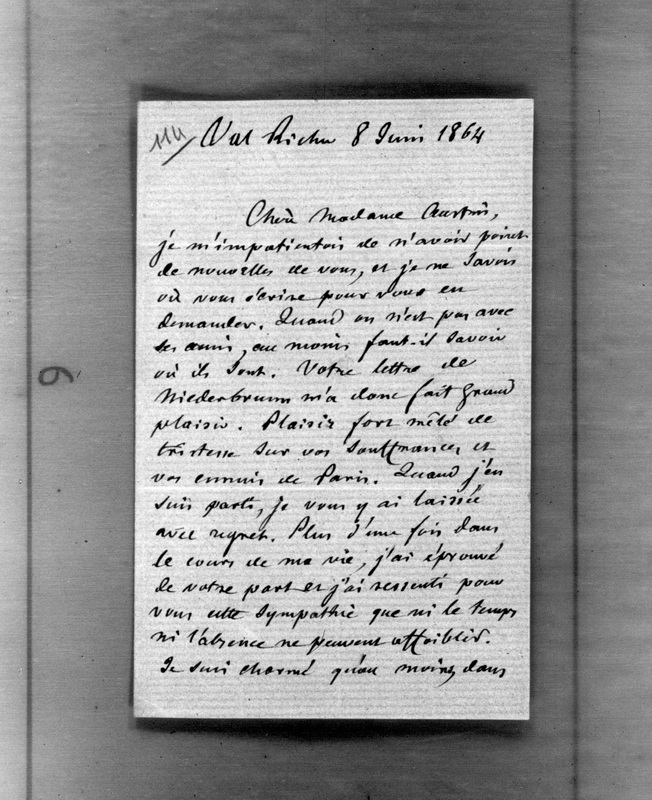 114
Val Richer 8 Juin 1864
Chère Madame Austin,
je m'impatientois de n'avoir point
de nouvelles de vous, et je ne savois
où vous écrire pour vous en
demander. Quand on n'est pas avec
ses amis, au moins faut-il savoir
où ils sont. Votre lettre de
Niederbrunn m'a donc fait grand
plaisir. Plaisir fort mêlé de
tristesse sur vos souffrances et
vos ennuis de Paris. Quand j'en
suis parti, je vous y ai laissée
avec regret. Plus d'une fois dans
le cours de ma vie, j'ai éprouvé
de votre part et j'ai ressenti pour
vous cette sympathie que ni le temps
ni l'absence ne peuvent affoiblir.
Je suis charmé qu'au moins, dans
9